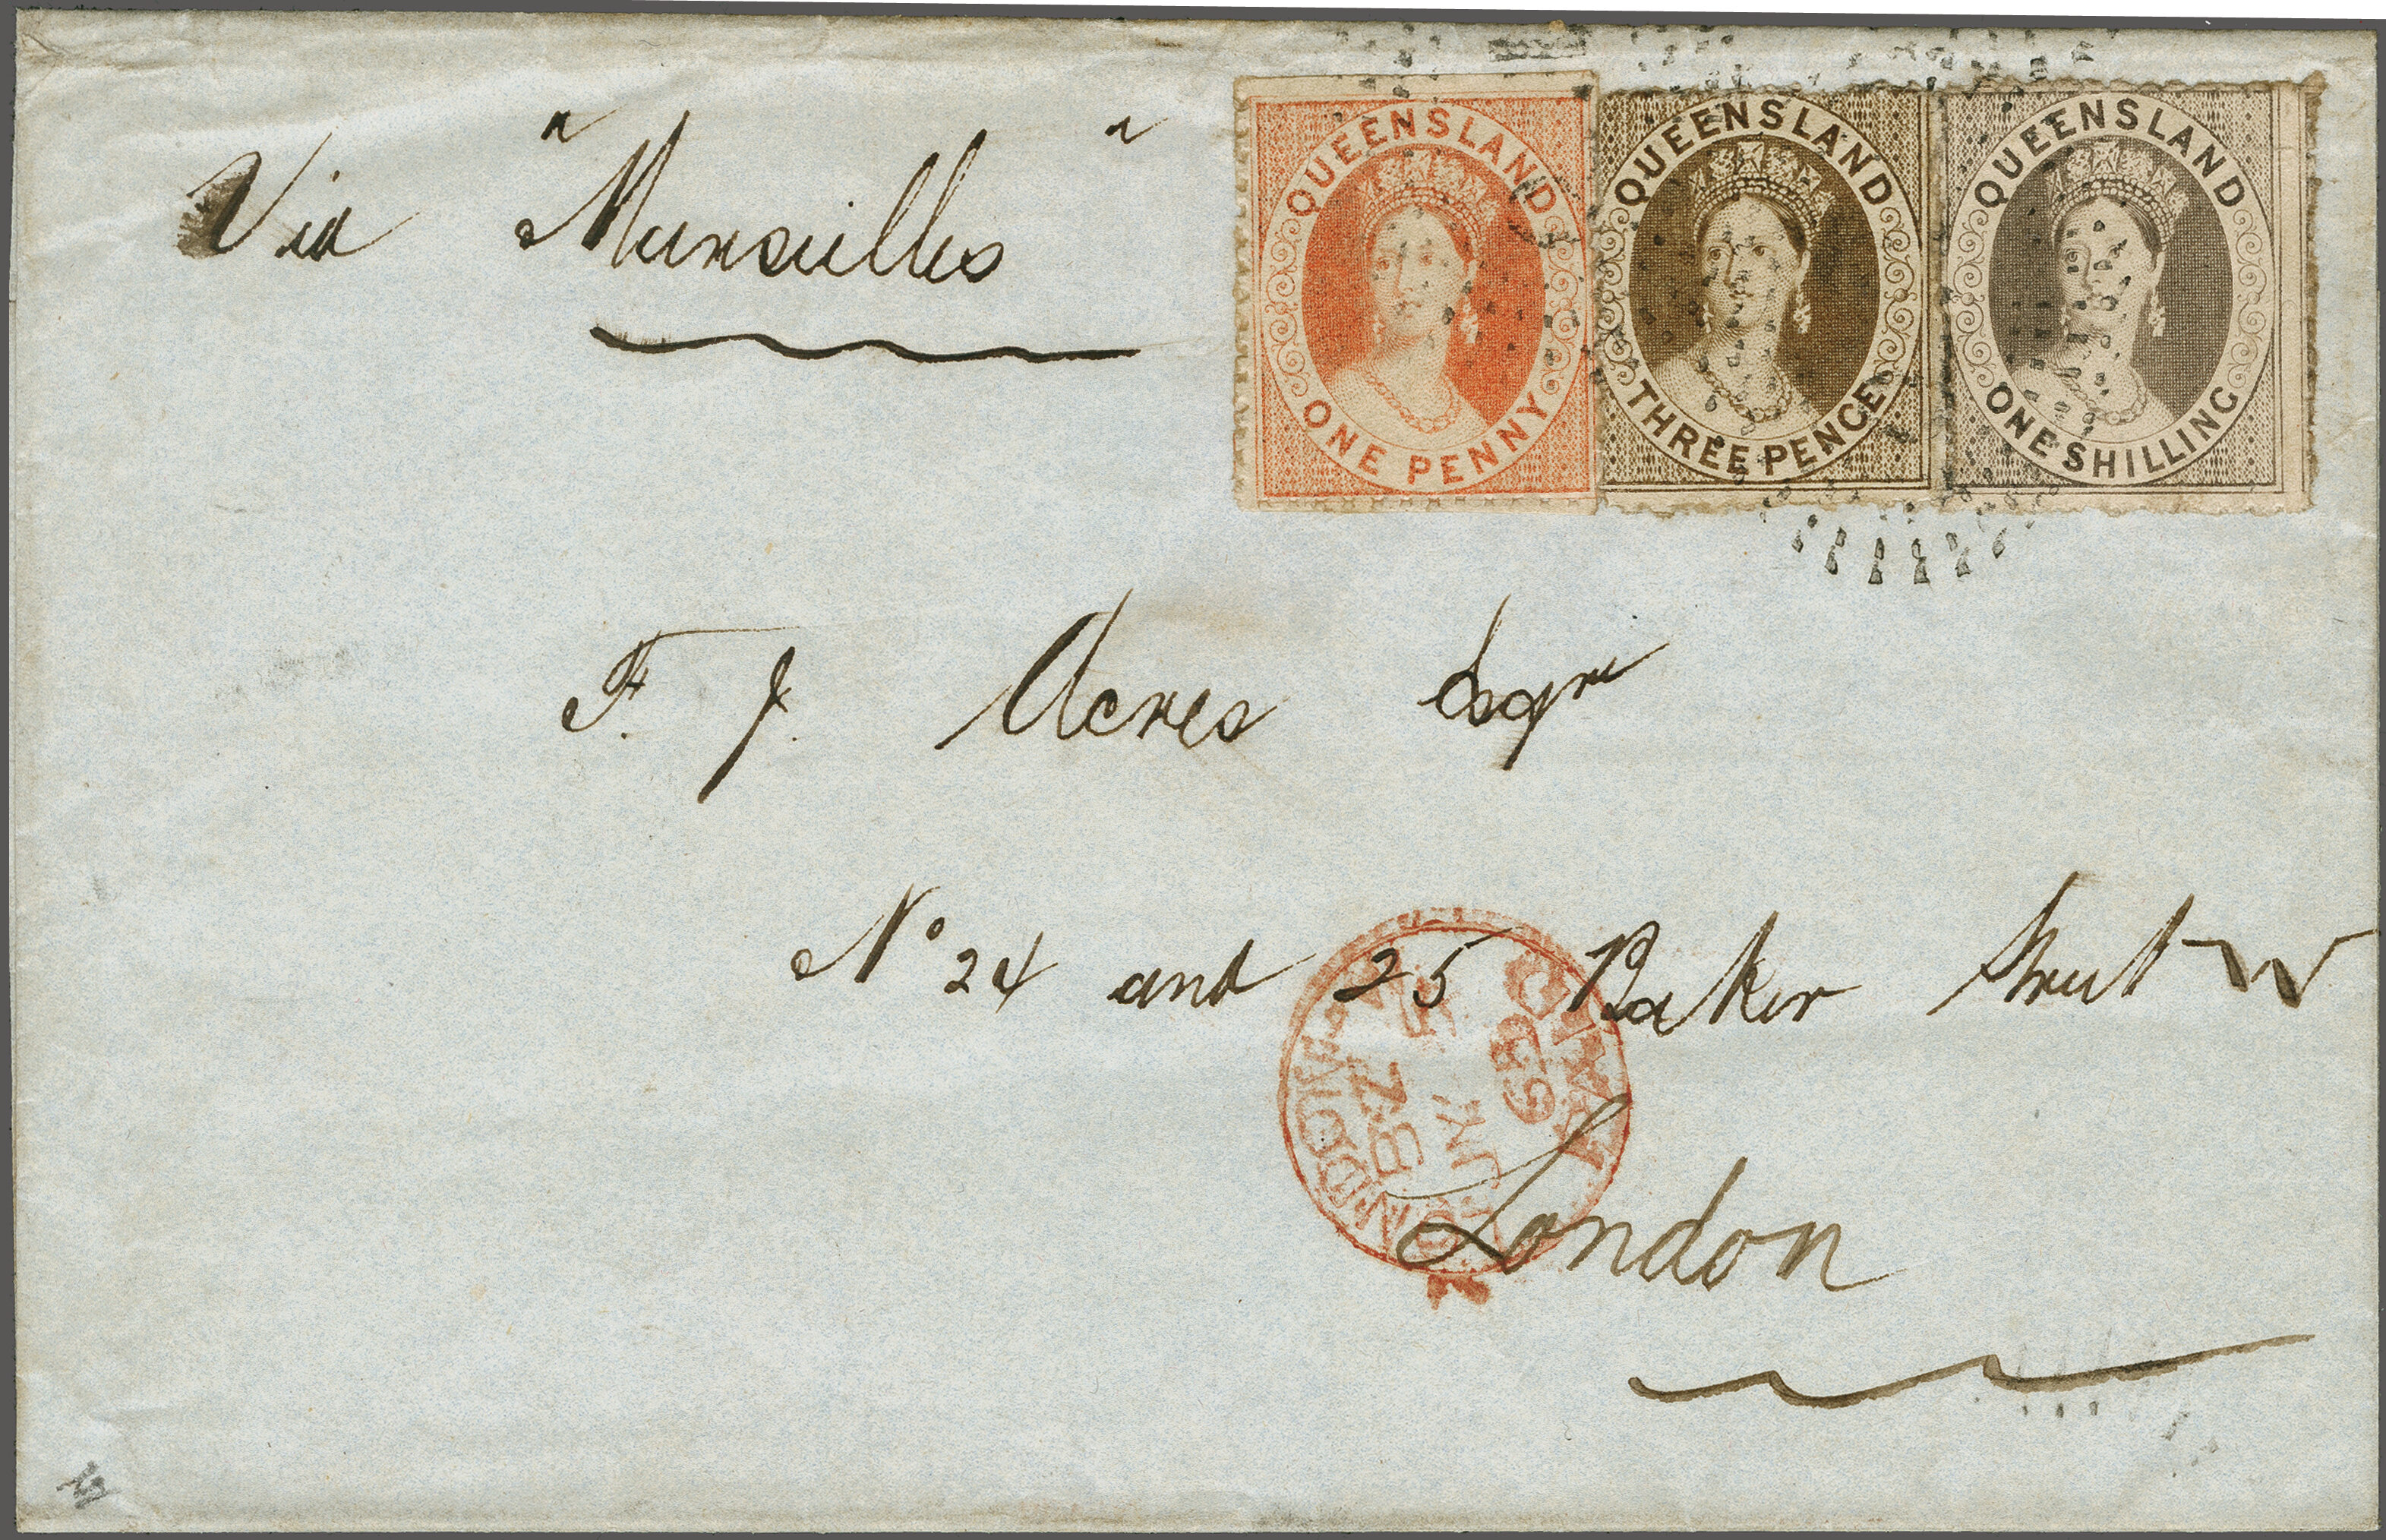 Via "Marseilles"
QUEENSLAND
ONE PENNY
QUEENSLAND
THREE PENCE
QUEENSLAND
ONE SHILLING
F. J. Acres Esqre
No 24 and 25 Baker Street W
London
LONDON
69